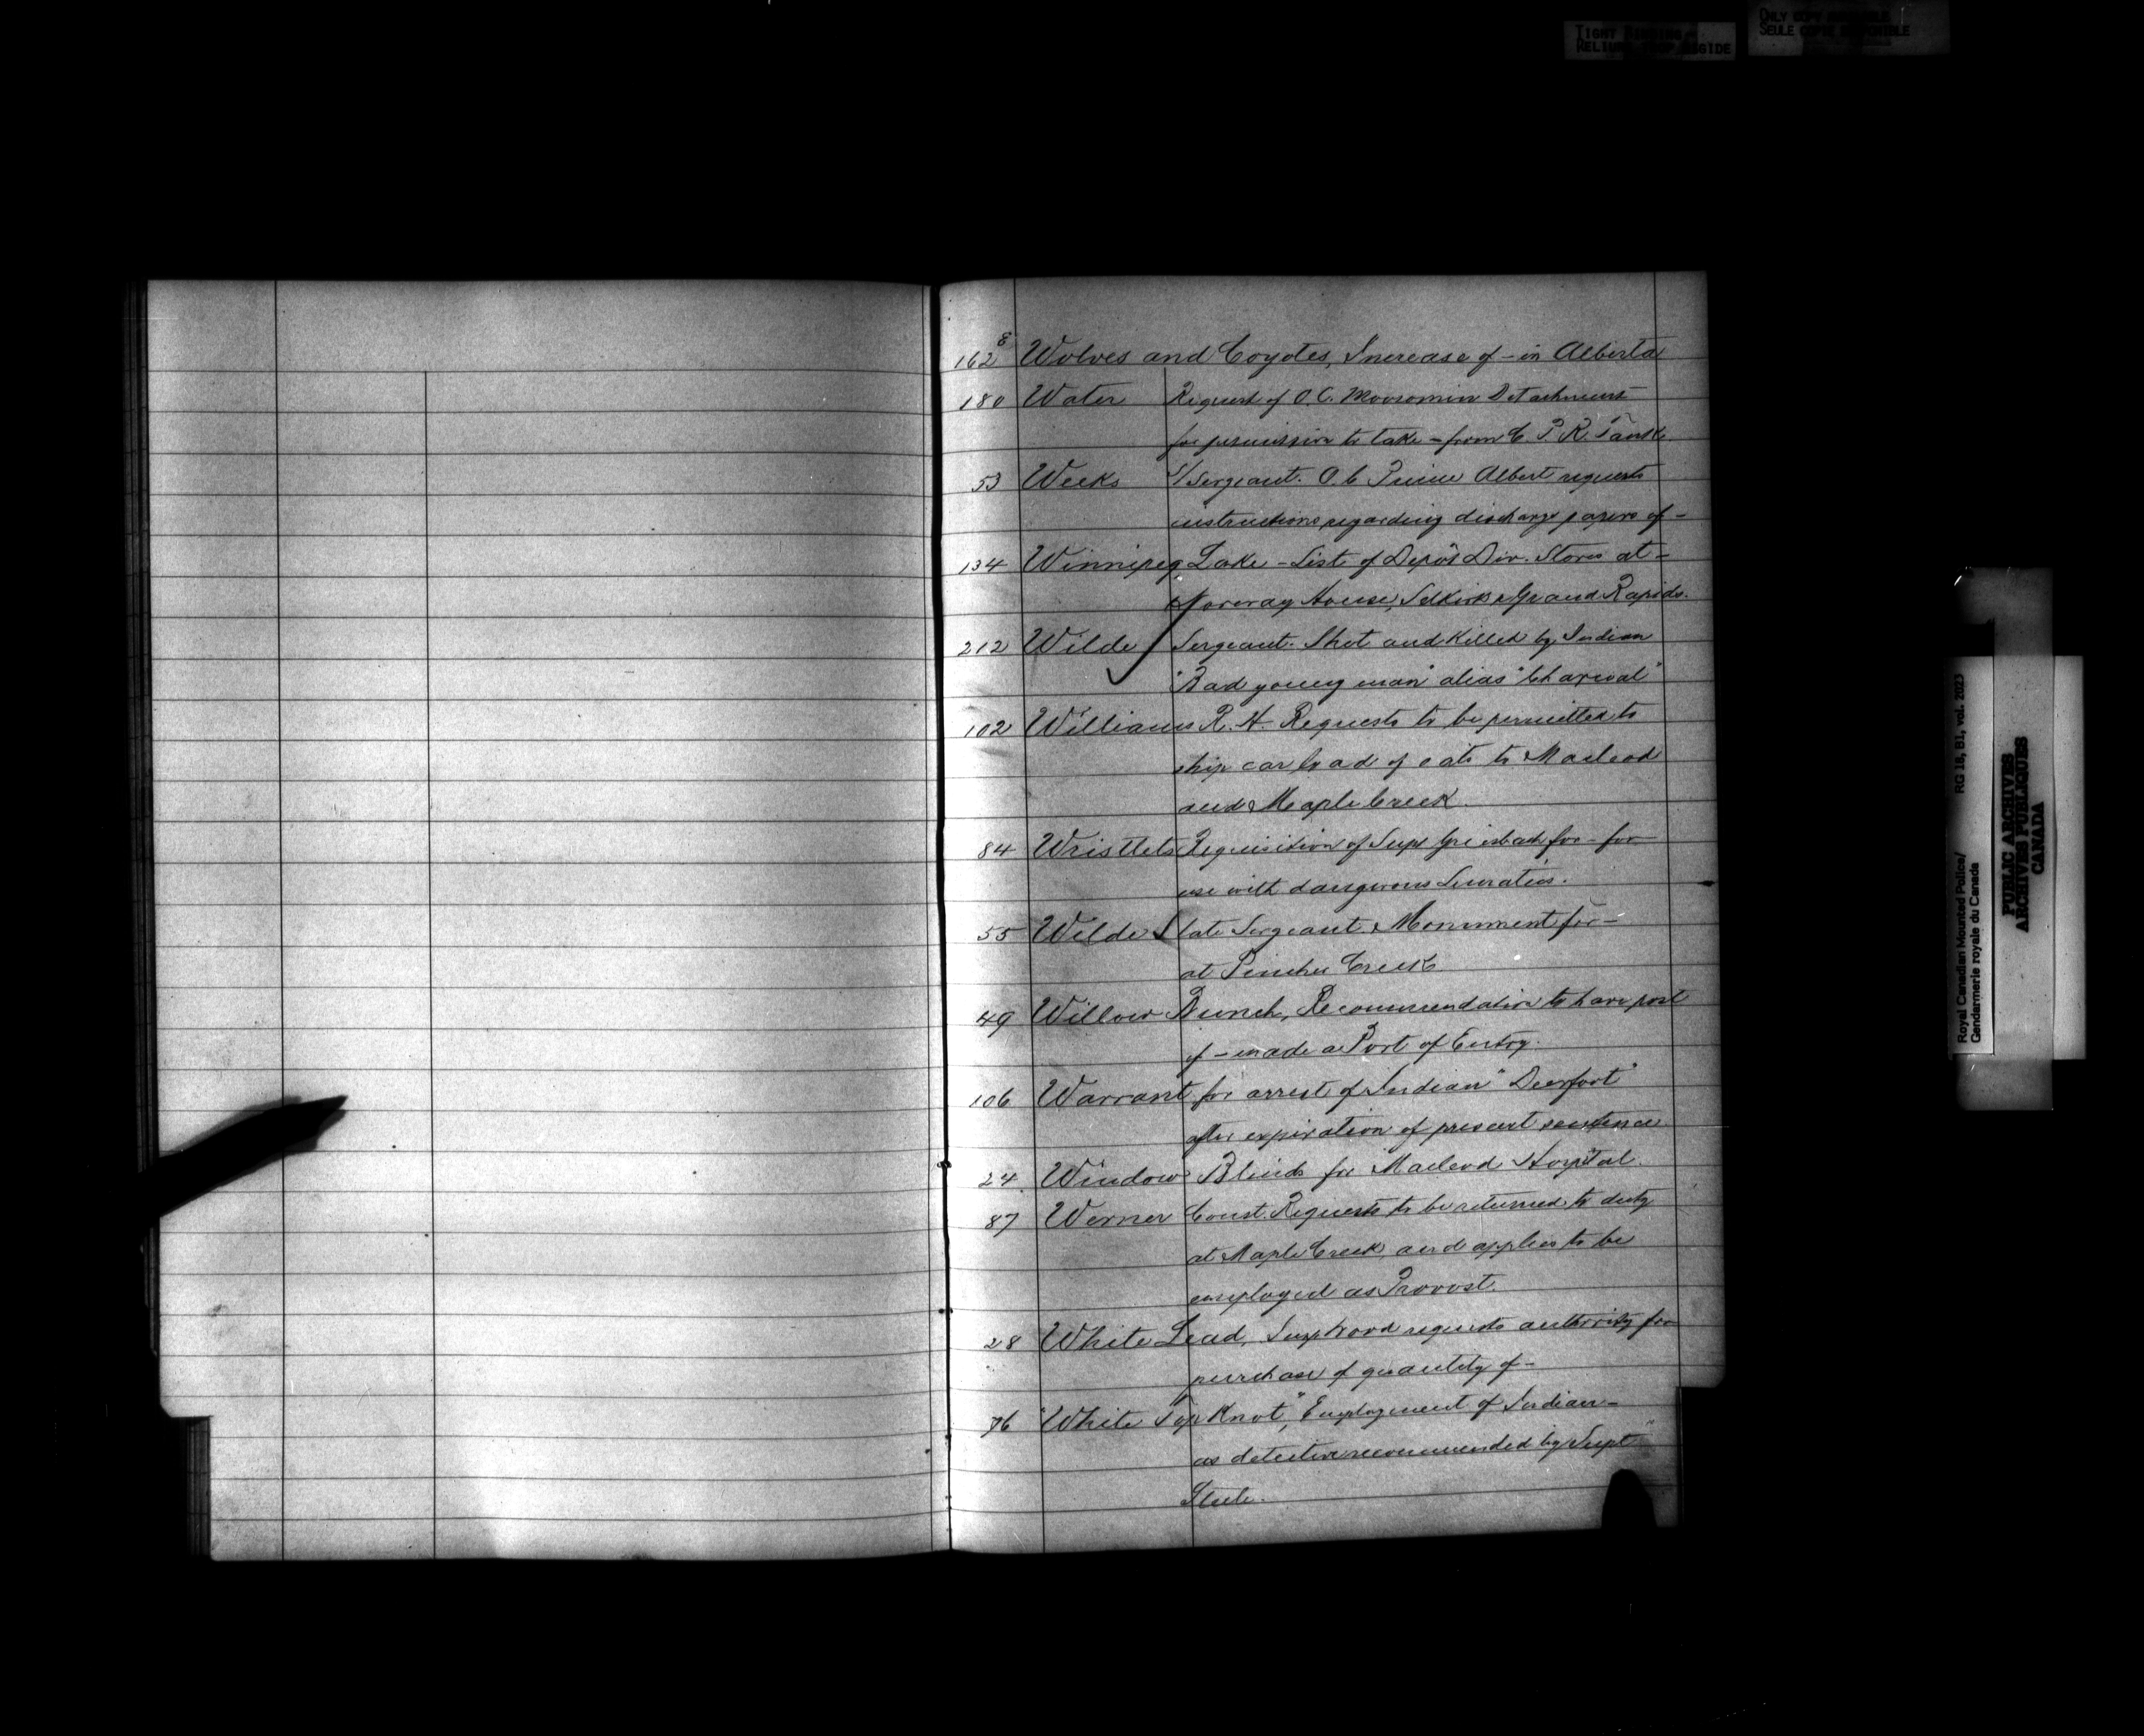 TIGHT BINDING
RELIURE TROP RIGIDE
ONLY COPY AVAILABLE
SEULE COPIE DISPONIBLE
8
162 Wolves and Coyotes, Increase of - in Alberta
180 Water Request of O.C. Moosomin Detachment
for permission to take - from C.P.R. Tank.
53 Weeks S/Sergeant. O.C. Prince Albert requests
instructions regarding discharge papers of -
134 Winnipeg Lake - List of Depôt Div. Stores at -
Norway House, Selkirk & Grand Rapids.
212 Wilde Sergeant. Shot and killed by Indian
"Bad young man" alias "Charcoal"
102 Williams R. H. Requests to be permitted to
ship car load of oats to Macleod
and Maple Creek.
84 Wristlets Requisition of Supt Griesbach for - for
use with dangerous Lunatics.
55 Wilde late Sergeant. Monument for -
at Pincher Creek
49 Willow Bunch, Recommendation to have post
of - made a Port of Entry.
106 Warrant for arrest of Indian "Deerfoot"
after expiration of present sentence
24 Window Blinds for Macleod Hospital.
87 Werner Const. Requests to be returned to duty
at Maple Creek, and applies to be
employed as Provost.
28 White Lead, Supt Wood requests authority for
purchase of quantity of -
76 "White Top Knot", Employment of Indian -
as detective recommended by Supt
Steele.
Royal Canadian Mounted Police/
Gendarmerie royale du Canada
RG 18, B1, vol. 2023
PUBLIC ARCHIVES
ARCHIVES PUBLIQUES
CANADA